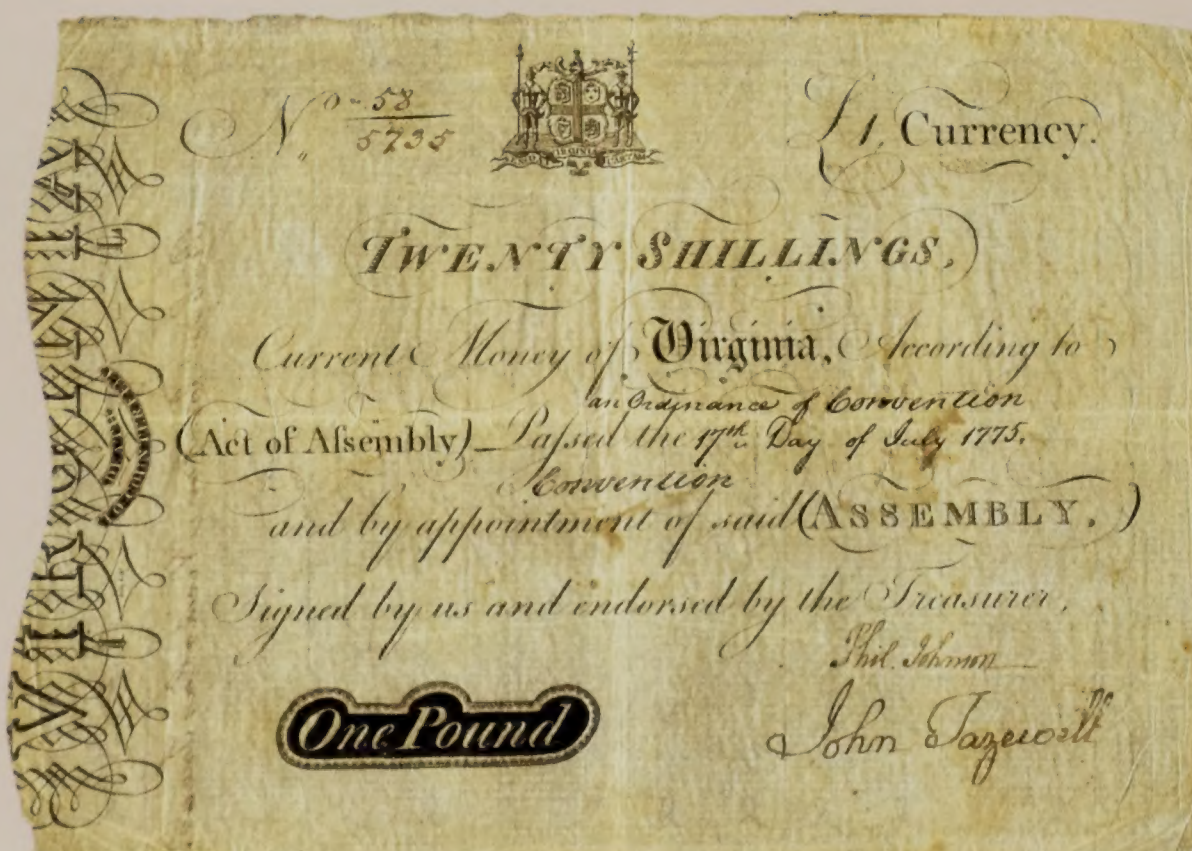 No. 58
5735
£1, Currency.
TWENTY SHILLINGS,
Current Money of Virginia, According to
an Ordinance of Convention
(Act of Aſsembly) Paſsed the 17th Day of July 1775.
Convention
and by appointment of said (ASSEMBLY.)
Signed by us and endorsed by the Treasurer,
Phil. Johnson
One Pound
John Tazewell